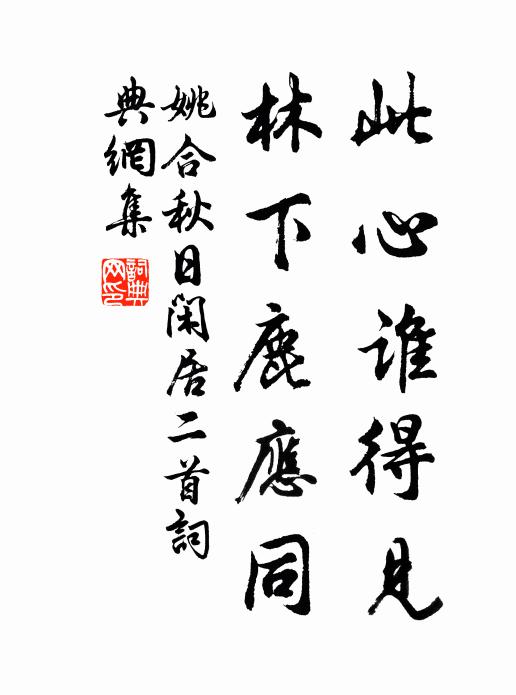 此心誰得見
林下鹿應同
姚合秋日閑居二首詞
典網集
詞典
网印